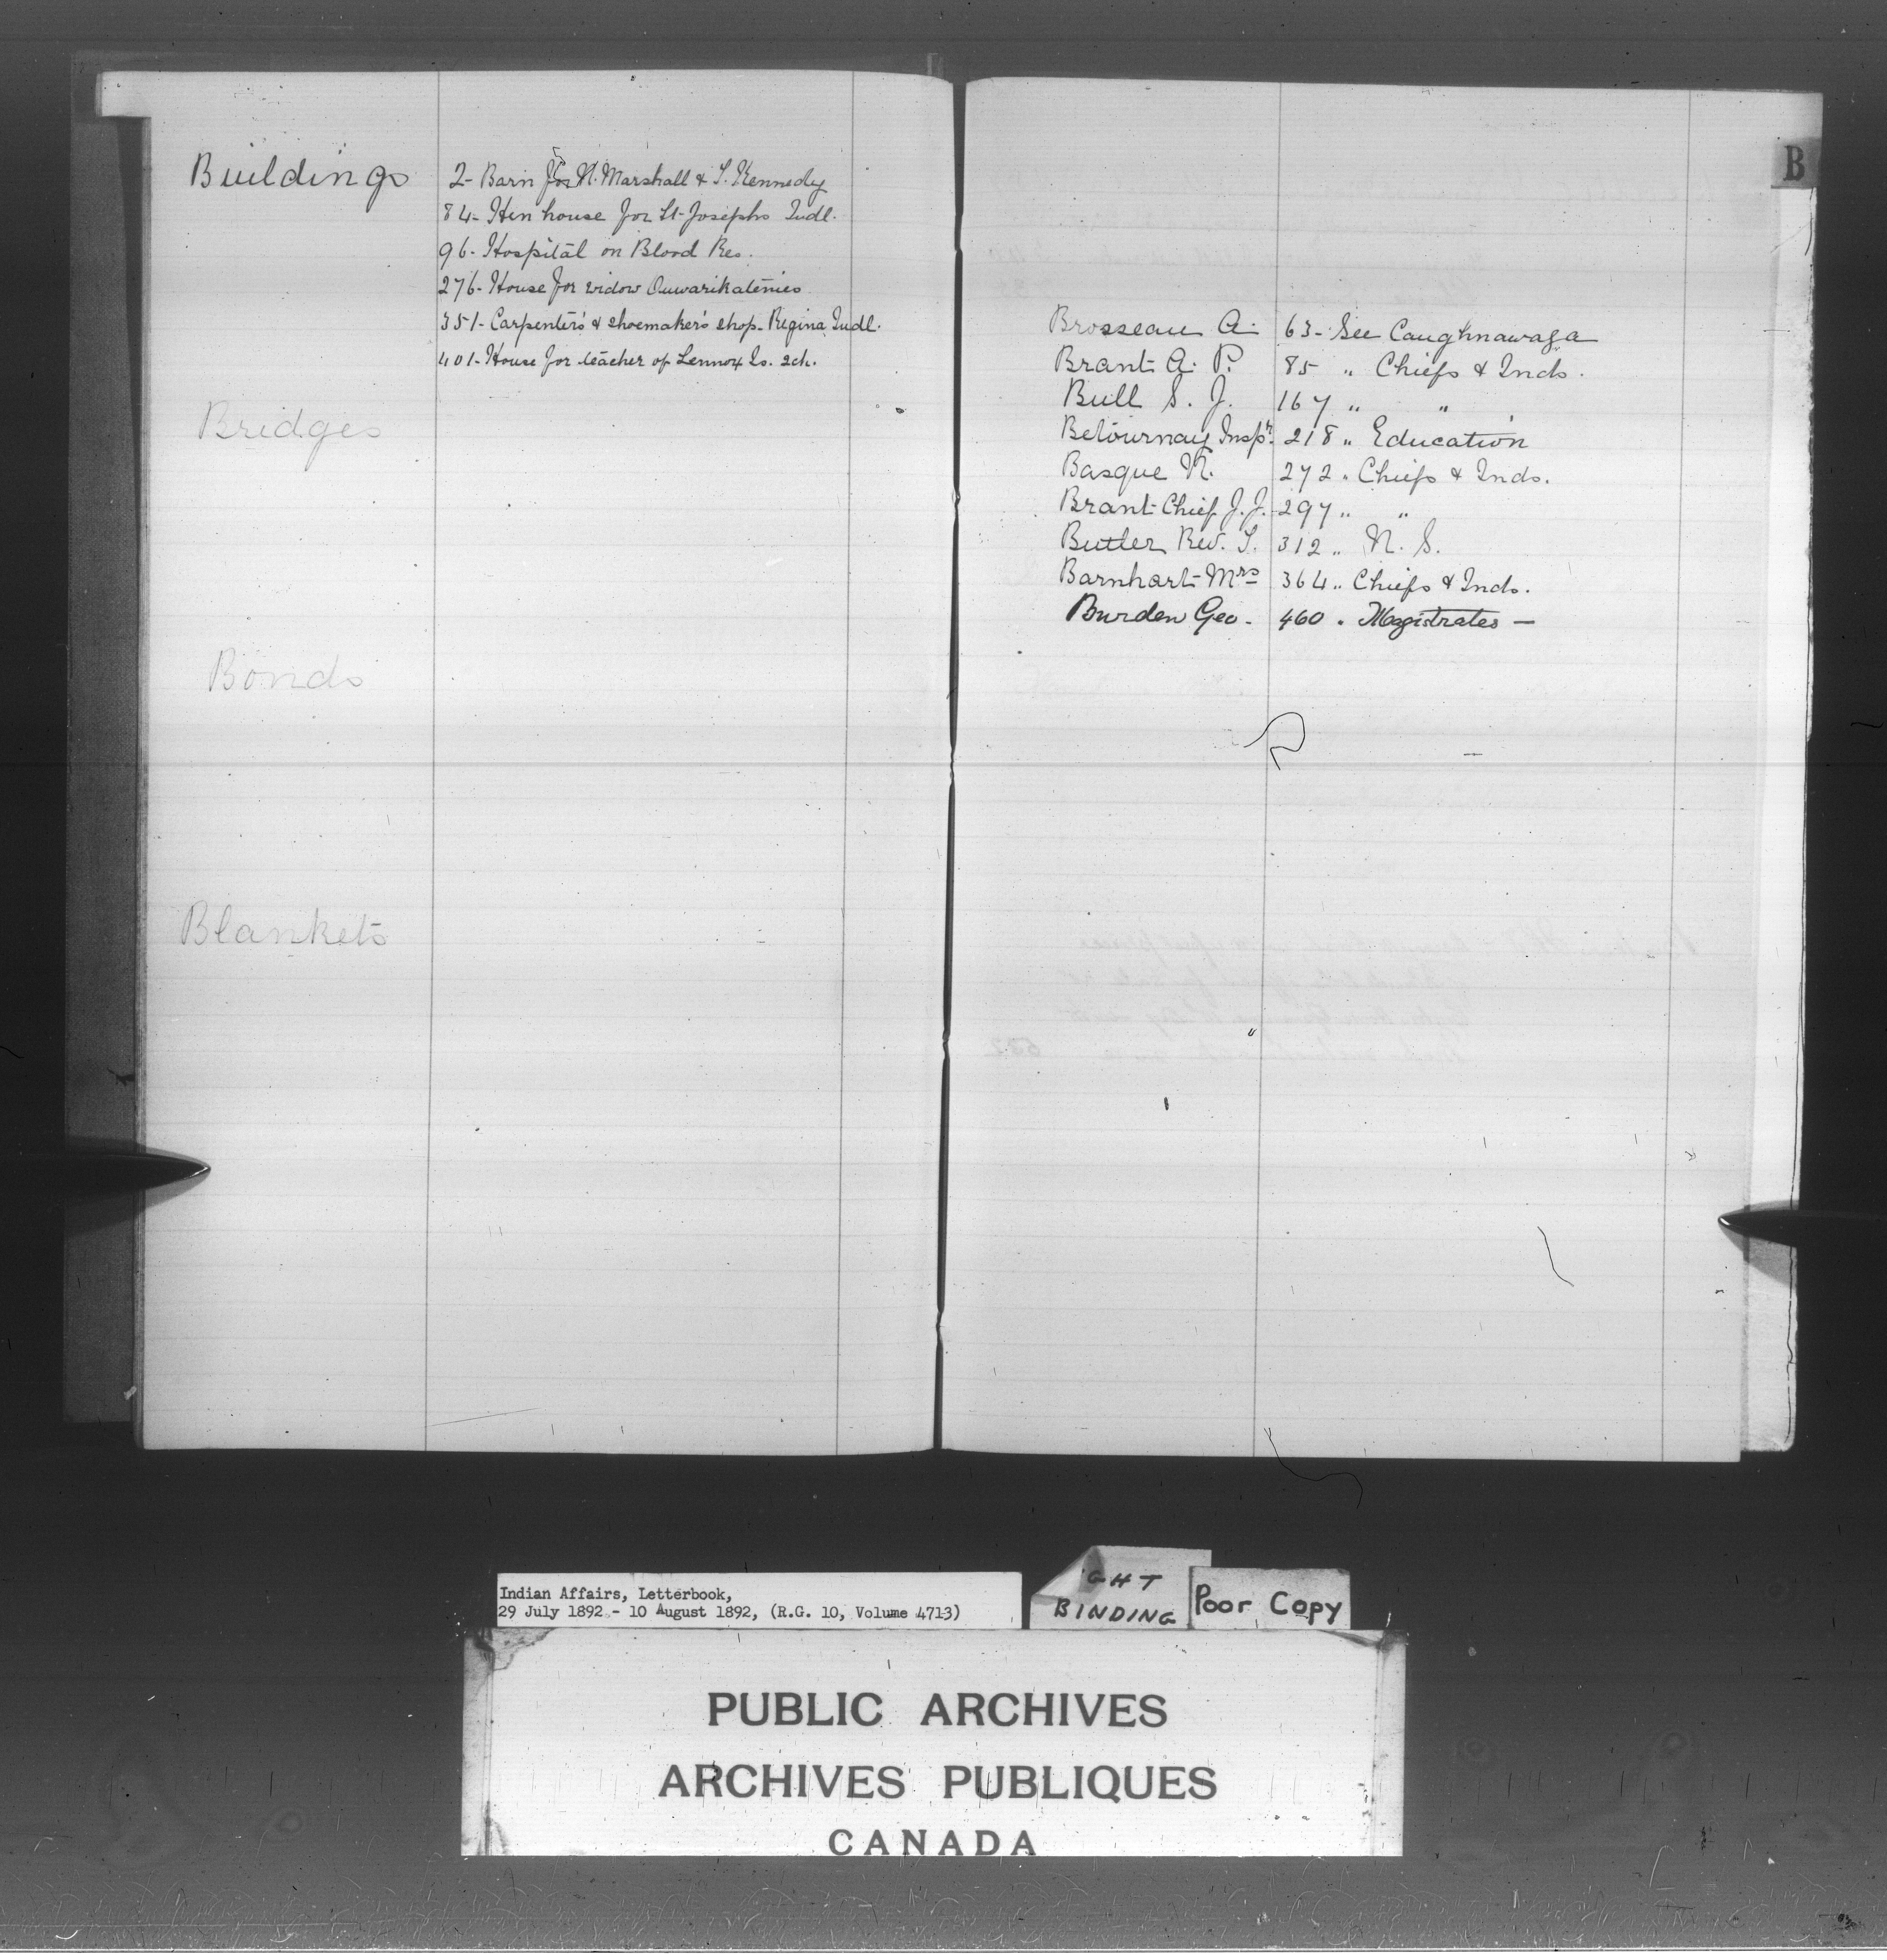 Buildings
2- Barn for N. Marshall & T. Kennedy
84- Hen house for St. Josephs Indl.
96- Hospital on Blood Res.
276- House for widow Ouwarikatenies
351- Carpenter's & shoemaker's shop- Regina Indl.
401- House for teacher of Lennox Is. sch.
Bridges
Bonds
Blankets
B
Brosseau A. 63- See Caughnawaga
Brant A. P. 85 " Chiefs & Inds.
Bull S. J. 167 " "
Betournay Inspr. 218 " Education
Basque N. 272 " Chiefs & Inds.
Brant Chief J. J. -297 " "
Butler Rev. T. 312 " N. S.
Barnhart Mrs 364 " Chiefs & Inds.
Burden Geo. 460 " Magistrates -
Indian Affairs, Letterbook,
29 July 1892 - 10 August 1892, (R.G. 10, Volume 4713)
GHT
BINDING
Poor Copy
PUBLIC ARCHIVES
ARCHIVES PUBLIQUES
CANADA